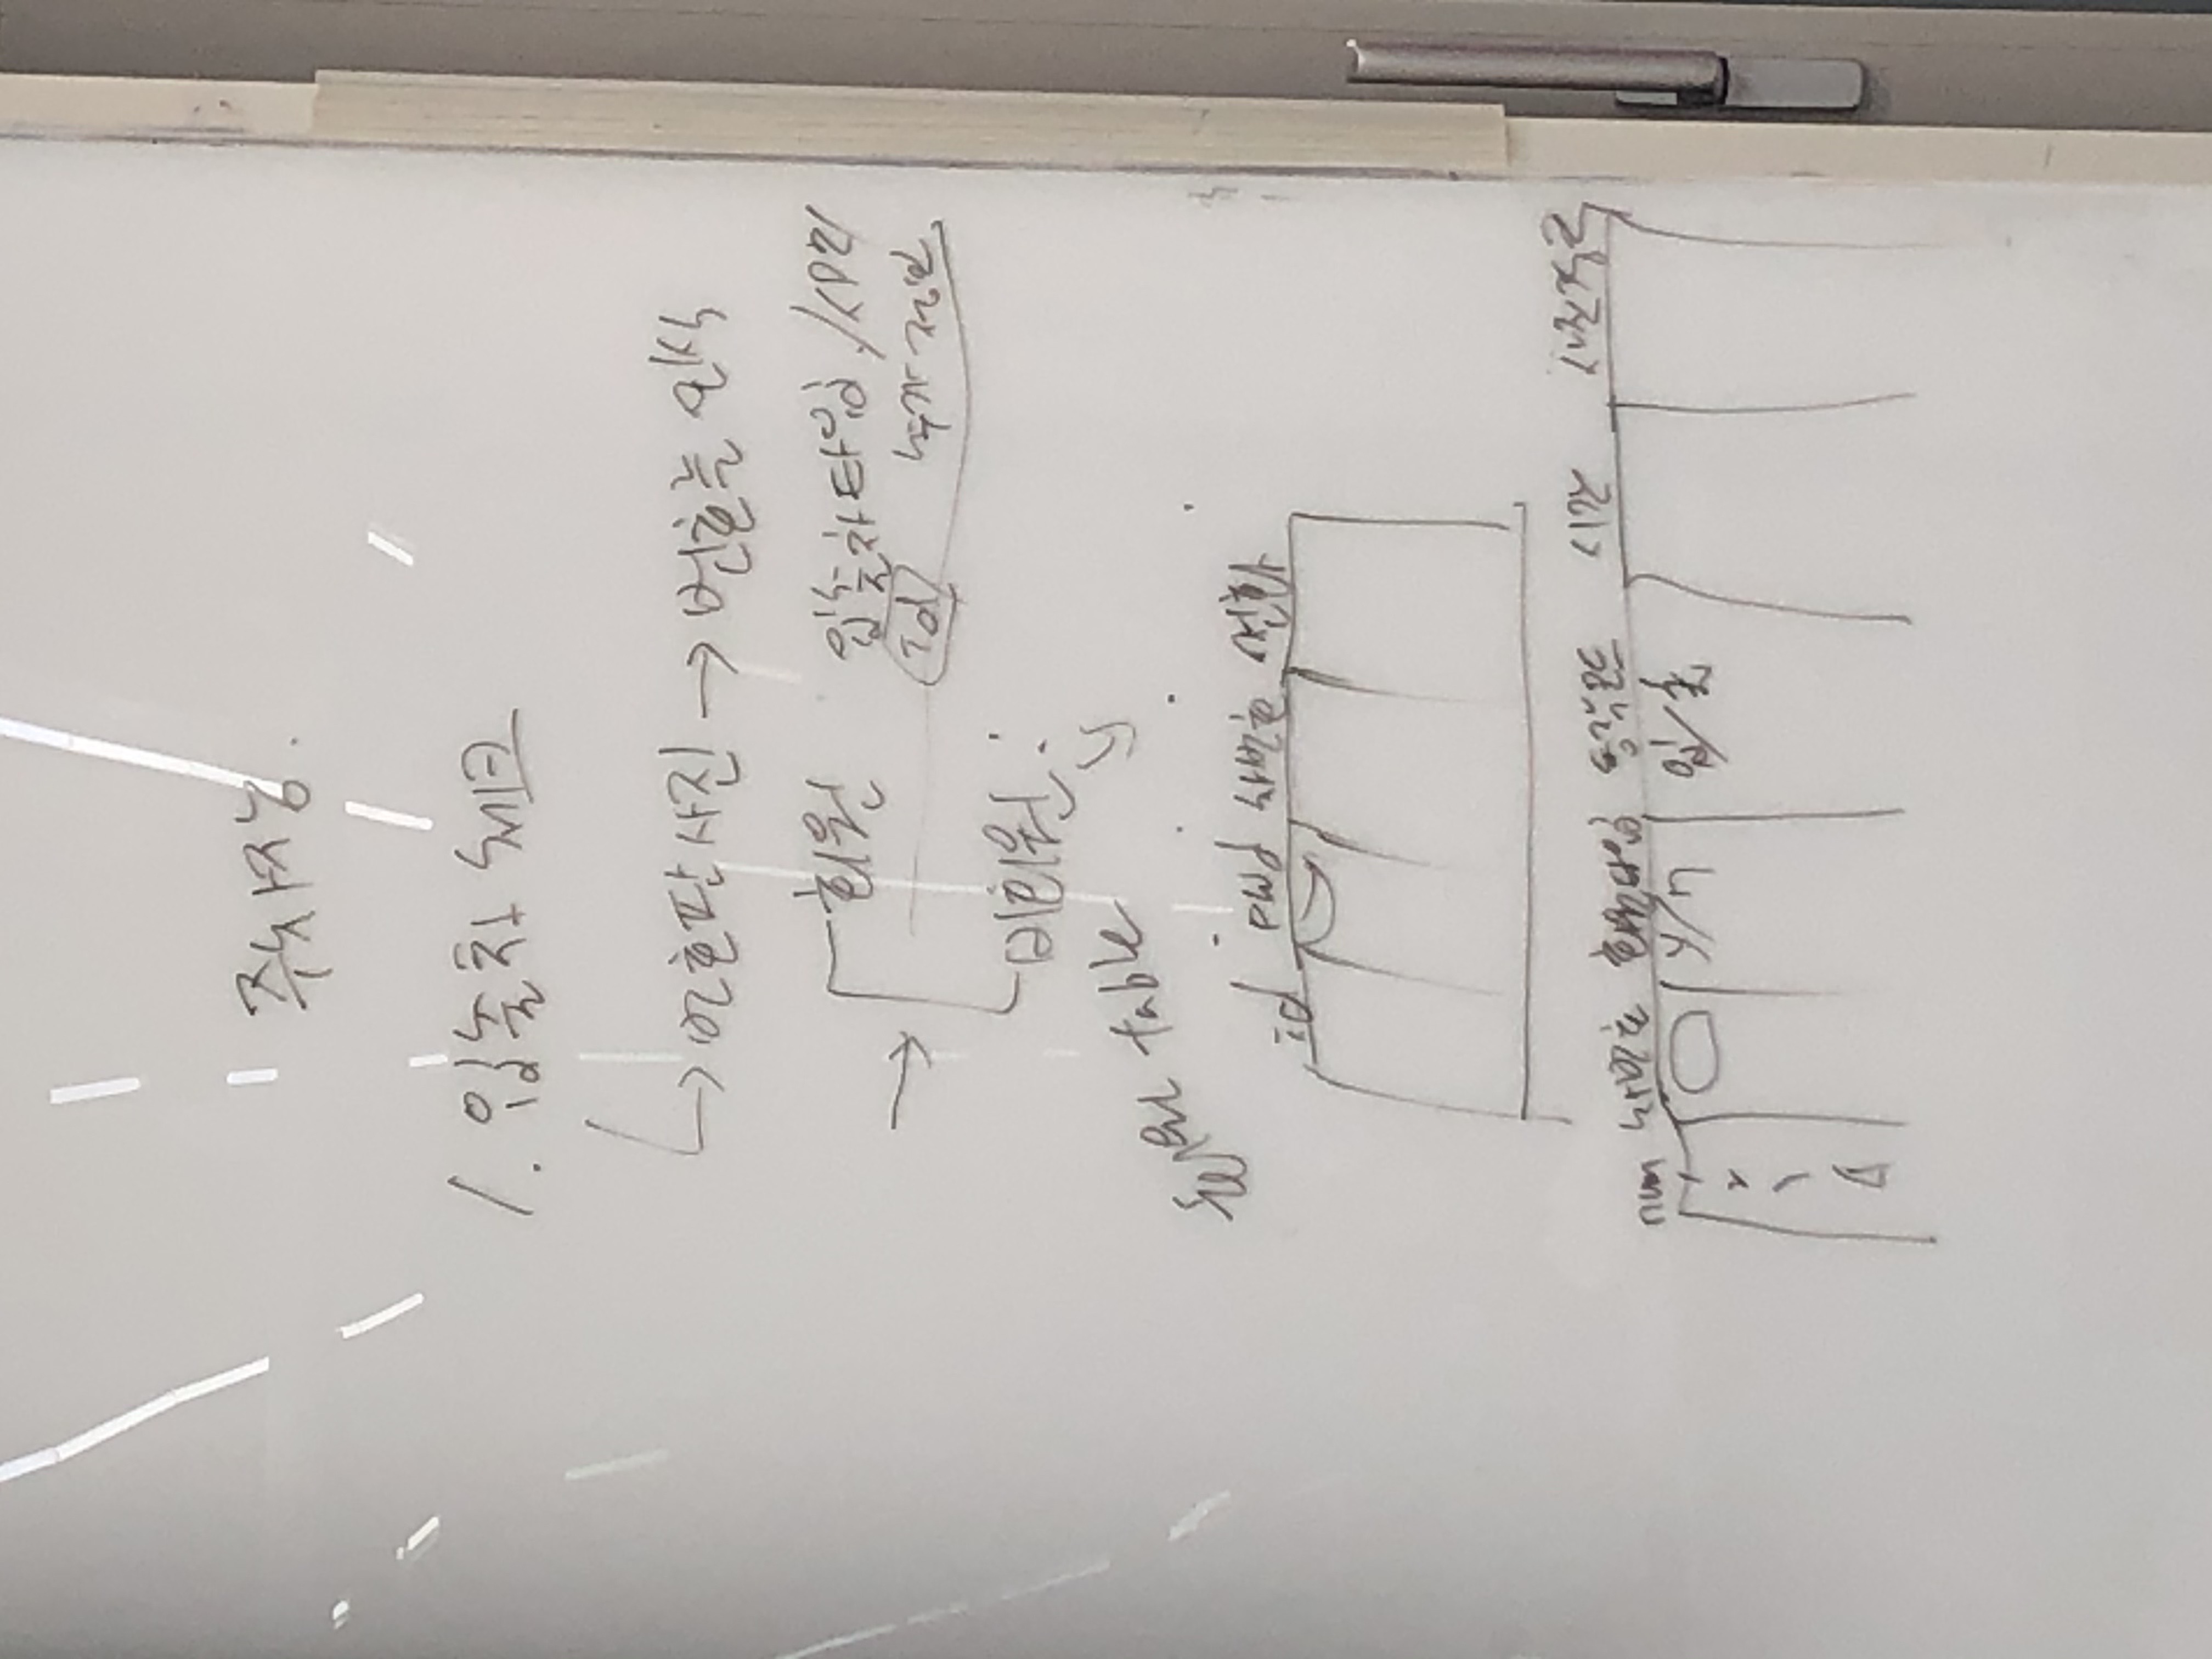 주차장.
1. 입출차 체크
↳ 번호판 사진 → 번호를 인식
→ 회원 입출차타임 / 처리
id 추가 정보
비회원 :
회원 table
id pwd 차번호 전화
num 차번호 회원타입 동작모드 시간 사진경로
1 y/n 입/출
2